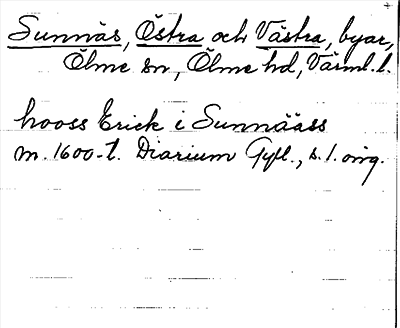 Sunnäs, Östra och Västra, byar,
Ölme sn, Ölme hd, Värml. l.
hooss Erick i Sunnääss
m. 1600-t. Diarium Gyll., s. 1. orig.